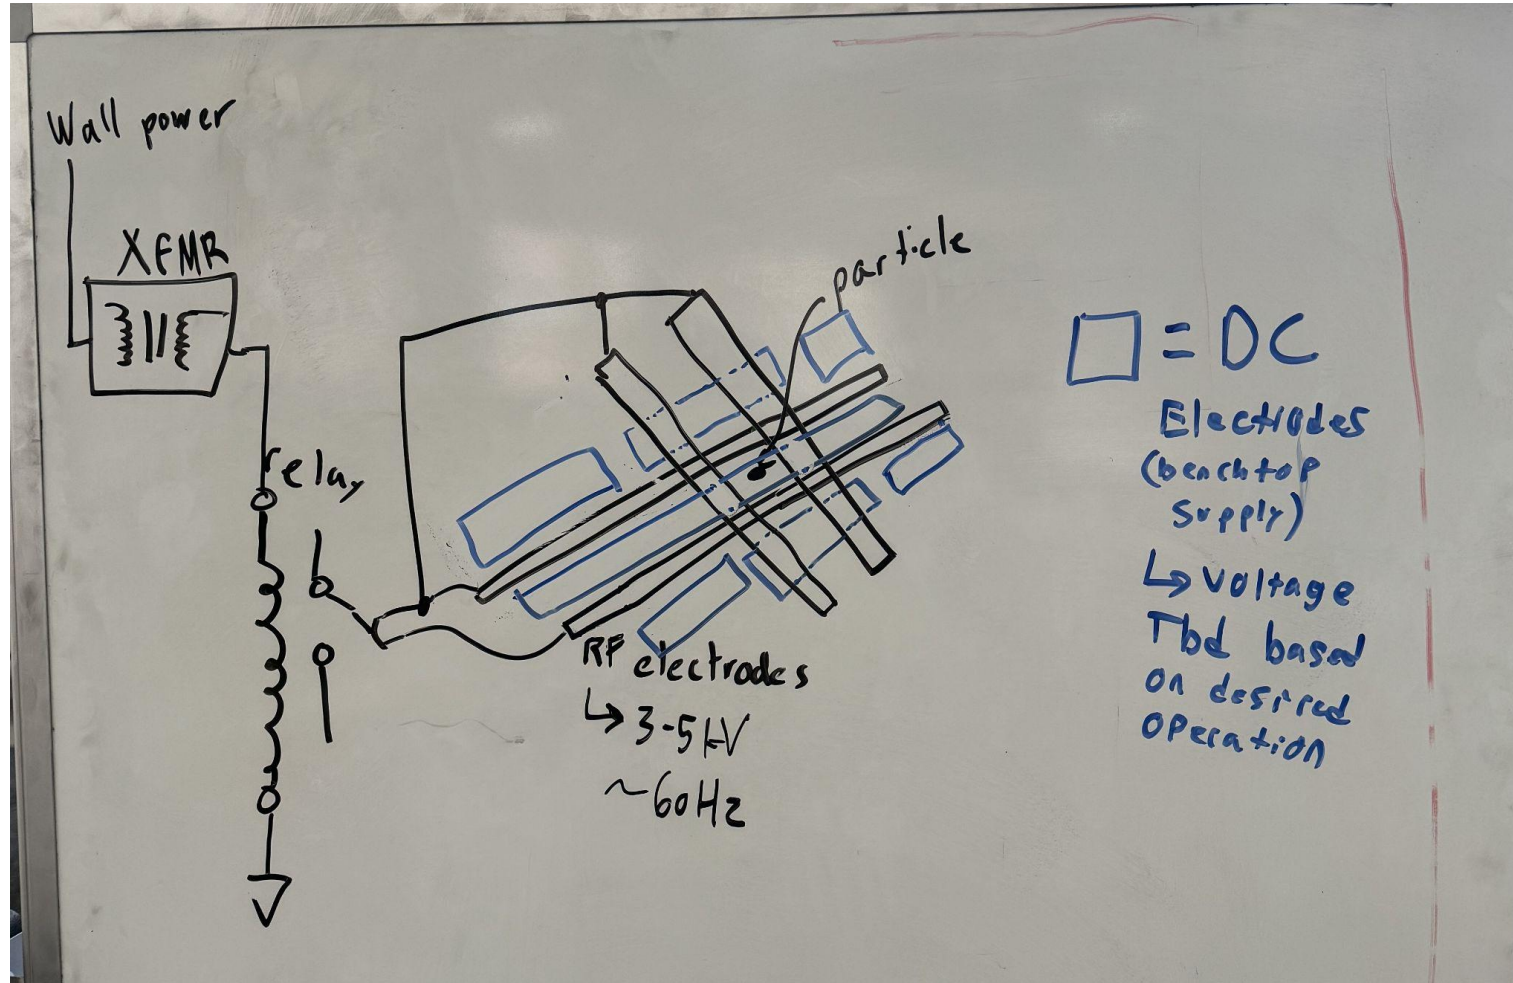 Wall power
XFMR
relay
particle
RF electrodes
↳ 3-5kV
~60Hz
= DC
Electrodes
(benchtop
supply)
↳ voltage
Tbd based
on desired
operation